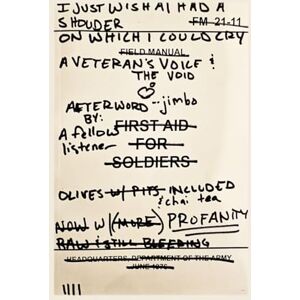 I JUST WISH I HAD A
SHOUDER FM 21-11
ON WHICH I COULD CRY
FIELD MANUAL
A VETERAN'S VOICE &
THE VOID
AFTERWORD -- jimbo
BY:
A fellow
listener
FIRST AID
FOR
SOLDIERS
OLIVES W/ PITS INCLUDED
& chai tea
NOW W/ (MORE) PROFANITY
RAW & STILL BLEEDING
HEADQUARTERS, DEPARTMENT OF THE ARMY
JUNE 1976